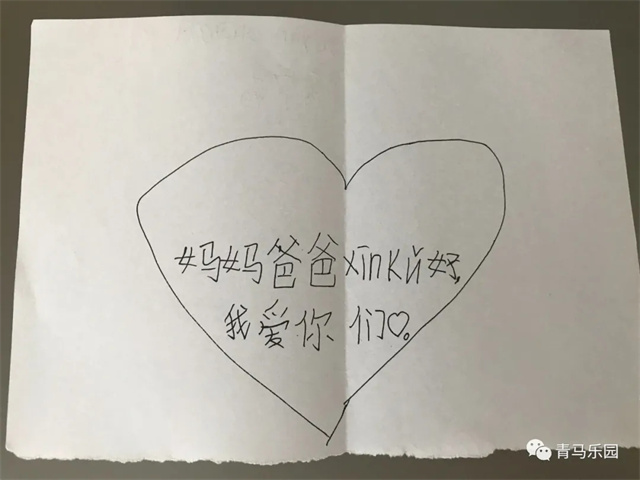 妈妈爸爸xīnkǔ好,
我爱你们♡。
青马乐园